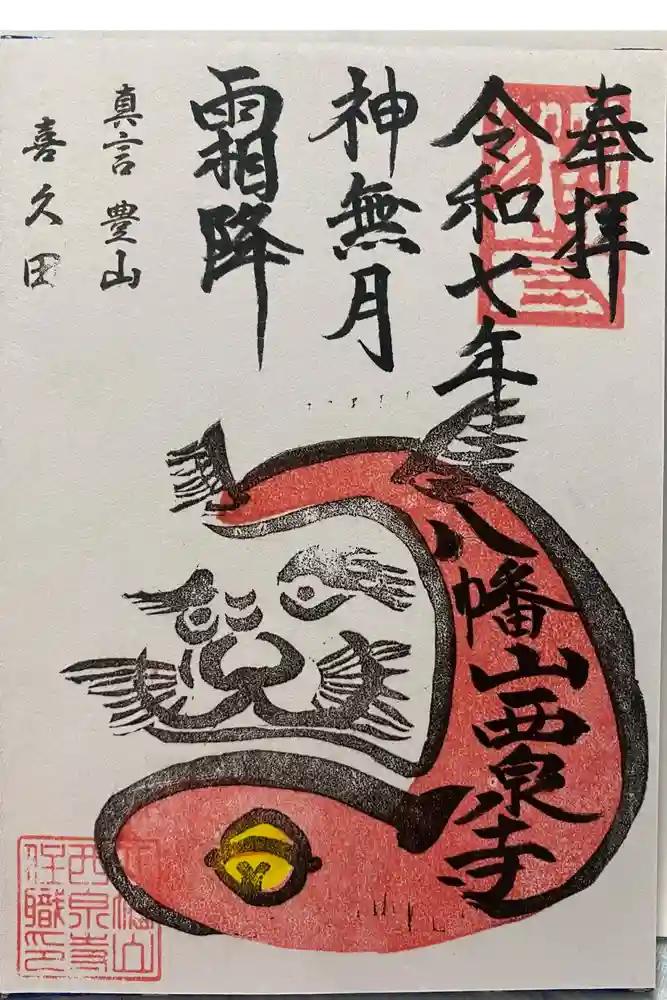 奉拝
令和七年
八幡山西泉寺
神無月
霜降
真言 豊山
喜久田
八幡山
西泉寺
住職印